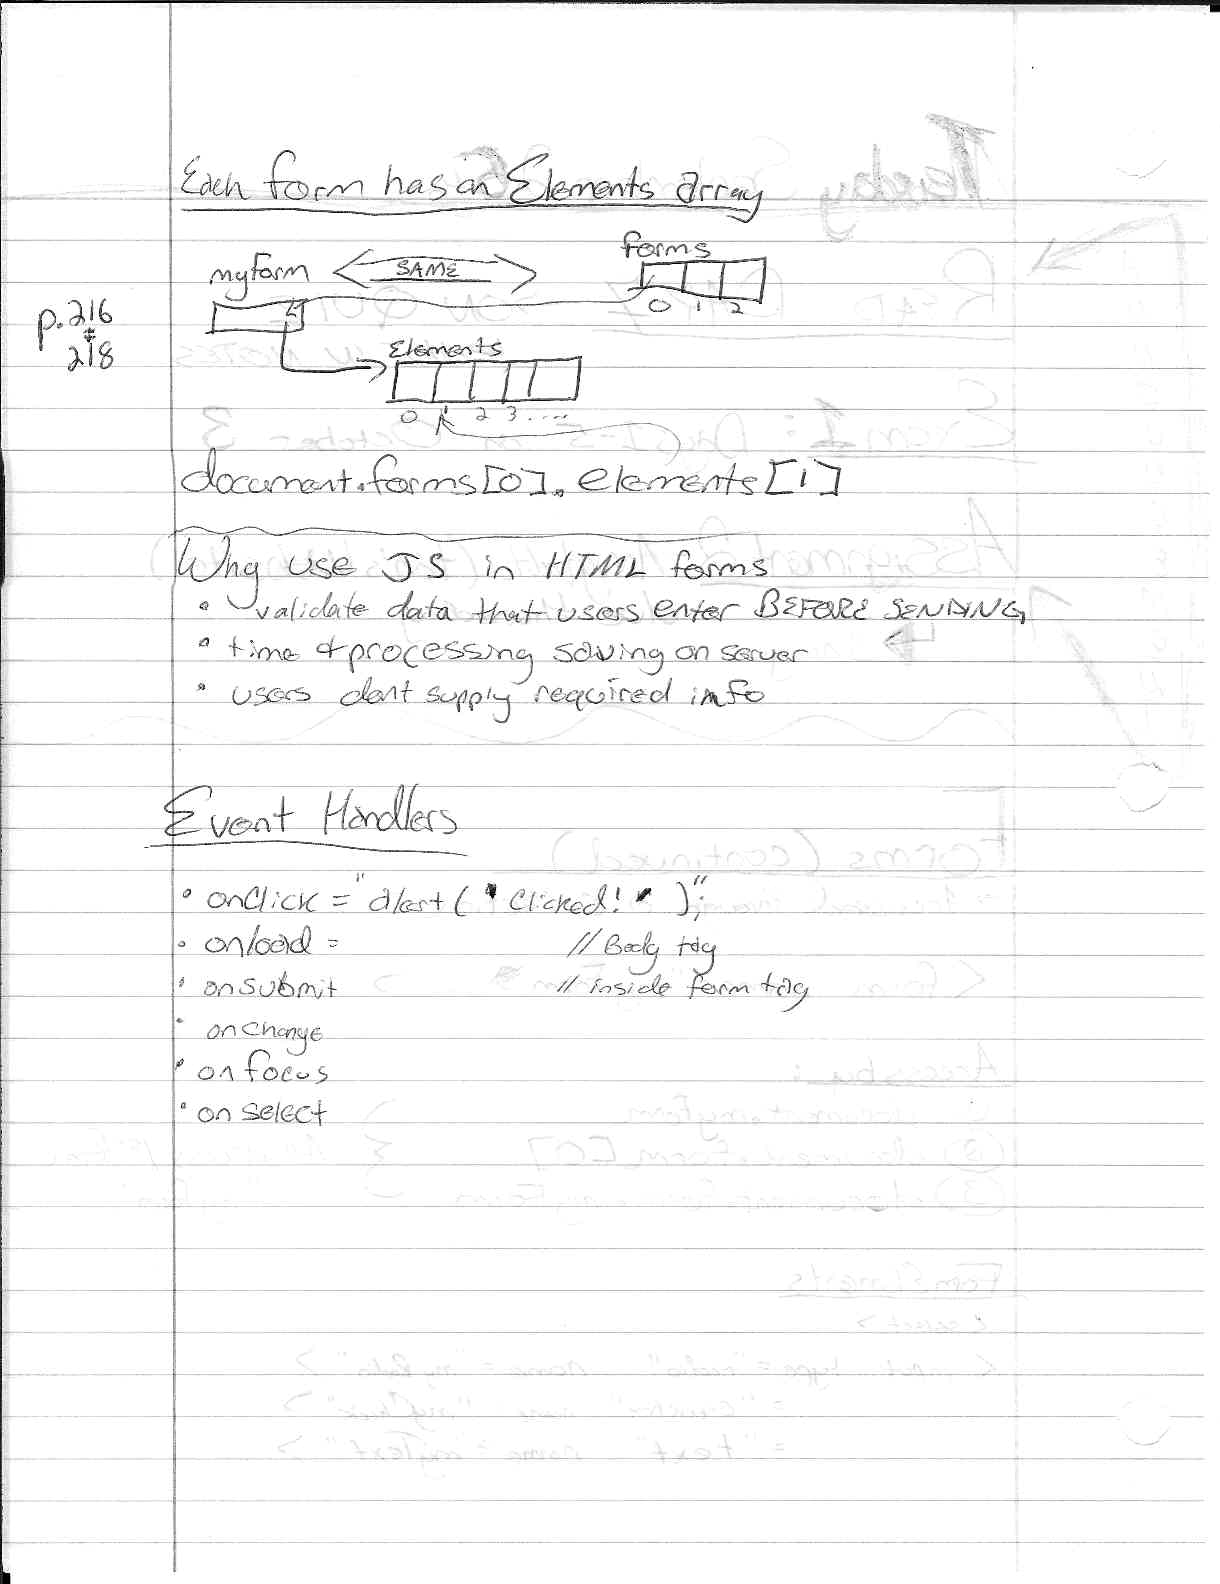 Each form has an Elements array
forms
myform SAME
0 1 2
p.216
&
218
Elements
0 1 2 3 ....
document.forms[0].elements[1]
Why use JS in HTML forms
• validate data that users enter BEFORE SENDING
• time & processing saving on server
• users dont supply required info
Event Handlers
• onClick = "alert ( ' Clicked! ' )";
• onload = // Body tag
• onSubmit // inside form tag
• onChange
• onfocus
• onselect